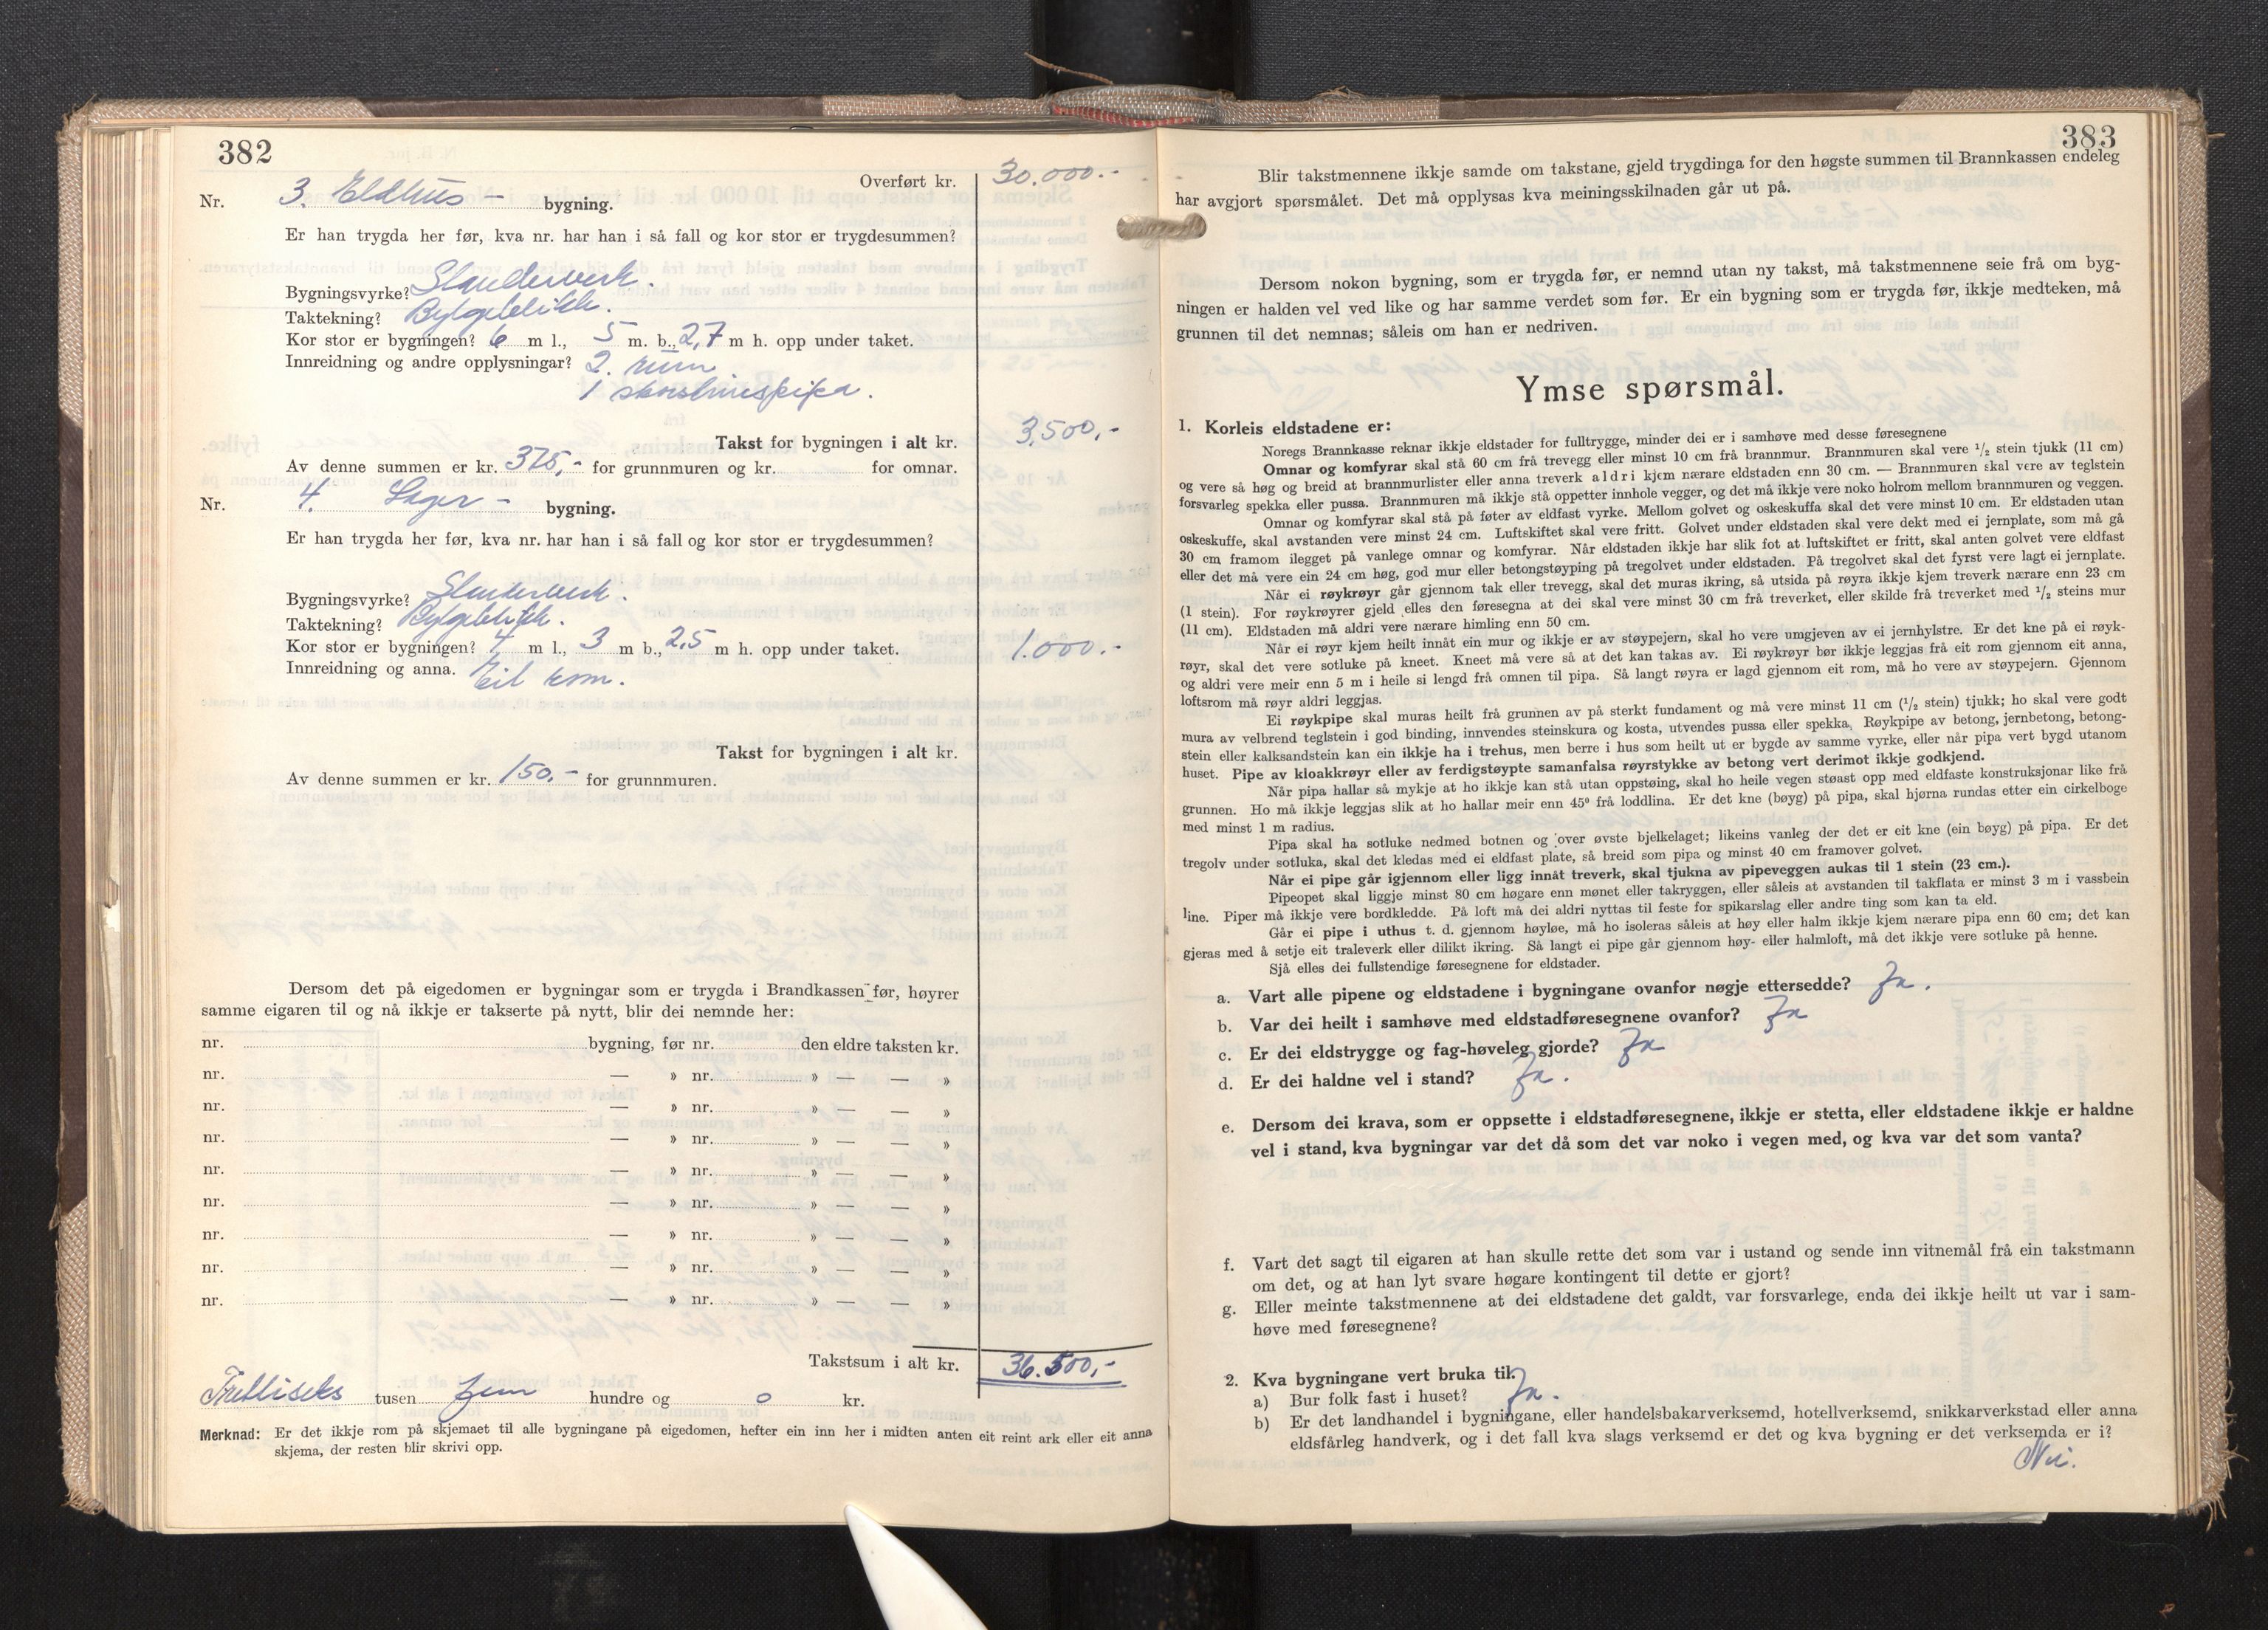 382
Overført kr. 30.000.-
Nr. 3. Eldhus — bygning.
Er han trygda her før, kva nr. har han i så fall og kor stor er trygdesummen?
Bygningsvyrke? Standerverk.
Taktekning? Bylgeblikk.
Kor stor er bygningen? 6 m l., 5 m. b., 2,7 m h. opp under taket.
Innreidning og andre opplysningar? 2. rum
1 skorsteinspipa.
Takst for bygningen i alt kr. 3,500,-
Av denne summen er kr. 375,- for grunnmuren og kr. for omnar.
Nr. 4. Lager — bygning.
Er han trygda her før, kva nr. har han i så fall og kor stor er trygdesummen?
Bygningsvyrke? Standerverk.
Taktekning? Bylgeblikk.
Kor stor er bygningen? 4 m l., 3 m b., 2,5 m h. opp under taket. 1.000.-
Innreidning og anna. Eit rom.
Takst for bygningen i alt kr.
Av denne summen er kr. 150,- for grunnmuren.
Dersom det på eigedomen er bygningar som er trygda i Brandkassen før, høyrer
samme eigaren til og nå ikkje er takserte på nytt, blir dei nemnde her:
nr. bygning, før nr. den eldre taksten kr.
nr. — » nr. » — — »
nr. — » nr. » — — »
nr. — » nr. » — — »
nr. — » nr. » — — »
nr. — » nr. » — — »
nr. — » nr. » — — »
nr. — » nr. » — — »
nr. — » nr. » — — »
Takstsum i alt kr. 36.500,-
Trettiseks tusen fem hundre og 0 kr.
Merknad: Er det ikkje rom på skjemaet til alle bygningane på eigedomen, hefter ein inn her i midten anten eit reint ark eller eit anna
skjema, der resten blir skrivi opp.
383
Blir takstmennene ikkje samde om takstane, gjeld trygdinga for den høgste summen til Brannkassen endeleg
har avgjort spørsmålet. Det må opplysas kva meiningsskilnaden går ut på.
Dersom nokon bygning, som er trygda før, er nemnd utan ny takst, må takstmennene seie frå om byg-
ningen er halden vel ved like og har samme verdet som før. Er ein bygning som er trygda før, ikkje medteken, må
grunnen til det nemnas; såleis om han er nedriven.
Ymse spørsmål.
1. Korleis eldstadene er:
Noregs Brannkasse reknar ikkje eldstader for fulltrygge, minder dei er i samhøve med desse føresegnene
Omnar og komfyrar skal stå 60 cm frå trevegg eller minst 10 cm frå brannmur. Brannmuren skal vere 1/2 stein tjukk (11 cm)
og vere så høg og breid at brannmurlister eller anna treverk aldri kjem nærare eldstaden enn 30 cm. — Brannmuren skal vere av teglstein
forsvarleg spekka eller pussa. Brannmuren må ikkje stå oppetter innhole vegger, og det må ikkje vere noko holrom mellom brannmuren og veggen.
Omnar og komfyrar skal stå på føter av eldfast vyrke. Mellom golvet og oskeskuffa skal det vere minst 10 cm. Er eldstaden utan
oskeskuffe, skal avstanden vere minst 24 cm. Luftskiftet skal vere fritt. Golvet under eldstaden skal vere dekt med ei jernplate, som må gå
30 cm framom ilegget på vanlege omnar og komfyrar. Når eldstaden ikkje har slik fot at luftskiftet er fritt, skal anten golvet vere eldfast
eller det må vere ein 24 cm høg, god mur eller betongstøyping på tregolvet under eldstaden. På tregolvet skal det fyrst vere lagt ei jernplate.
Når ei røykrøyr går gjennom tak eller trevegg, skal det muras ikring, så utsida på røyra ikkje kjem treverk nærare enn 23 cm
(1 stein). For røykrøyrer gjeld elles den føresegna at dei skal vere minst 30 cm frå treverket, eller skilde frå treverket med 1/2 steins mur
(11 cm). Eldstaden må aldri vere nærare himling enn 50 cm.
Når ei røyr kjem heilt innåt ein mur og ikkje er av støypejern, skal ho vere umgjeven av ei jernhylstre. Er det kne på ei røyk-
røyr, skal det vere sotluke på kneet. Kneet må vere så at det kan takas av. Ei røykrøyr bør ikkje leggjas frå eit rom gjennom eit anna,
og aldri vere meir enn 5 m i heile si lengd frå omnen til pipa. Så langt røyra er lagd gjennom eit rom, må ho vere av støypejern. Gjennom
loftsrom må røyr aldri leggjas.
Ei røykpipe skal muras heilt frå grunnen av på sterkt fundament og må vere minst 11 cm (1/2 stein) tjukk; ho skal vere godt
mura av velbrend teglstein i god binding, innvendes steinskura og kosta, utvendes pussa eller spekka. Røykpipe av betong, jernbetong, betong-
stein eller kalksandstein kan ein ikkje ha i trehus, men berre i hus som heilt ut er bygde av samme vyrke, eller når pipa vert bygd utanom
huset. Pipe av kloakkrøyr eller av ferdigstøypte samanfalsa røyrstykke av betong vert derimot ikkje godkjend.
Når pipa hallar så mykje at ho ikkje kan stå utan oppstøing, skal ho heile vegen støast opp med eldfaste konstruksjonar like frå
grunnen. Ho må ikkje leggjas slik at ho hallar meir enn 45° frå loddlina. Er det kne (bøyg) på pipa, skal hjørna rundas etter ein cirkelboge
med minst 1 m radius.
Pipa skal ha sotluke nedmed botnen og over øvste bjelkelaget; likeins vanleg der det er eit kne (ein bøyg) på pipa. Er det
tregolv under sotluka, skal det kledas med ei eldfast plate, så breid som pipa og minst 40 cm framover golvet.
Når ei pipe går igjennom eller ligg innåt treverk, skal tjukna av pipeveggen aukas til 1 stein (23 cm.).
Pipeopet skal liggje minst 80 cm høgare enn mønet eller takryggen, eller såleis at avstanden til takflata er minst 3 m i vassbein
line. Piper må ikkje vere bordkledde. På loft må dei aldri nyttas til feste for spikarslag eller andre ting som kan ta eld.
Går ei pipe i uthus t. d. gjennom høyløe, må ho isoleras såleis at høy eller halm ikkje kjem nærare pipa enn 60 cm; det kan
gjeras med å setje eit traleverk eller dilikt ikring. Så langt ei pipe går gjennom høy- eller halmloft, må det ikkje vere sotluke på henne.
Sjå elles dei fullstendige føresegnene for eldstader.
a. Vart alle pipene og eldstadene i bygningane ovanfor nøgje ettersedde? Ja.
b. Var dei heilt i samhøve med eldstadføresegnene ovanfor? Ja
c. Er dei eldstrygge og fag-høveleg gjorde? Ja
d. Er dei haldne vel i stand? Ja.
e. Dersom dei krava, som er oppsette i eldstadføresegnene, ikkje er stetta, eller eldstadene ikkje er haldne
vel i stand, kva bygningar var det då som det var noko i vegen med, og kva var det som vanta?
f. Vart det sagt til eigaren at han skulle rette det som var i ustand og sende inn vitnemål frå ein takstmann
om det, og at han lyt svare høgare kontingent til dette er gjort?
g. Eller meinte takstmennene at dei eldstadene det galdt, var forsvarlege, enda dei ikkje heilt ut var i sam-
høve med føresegnene?
2. Kva bygningane vert bruka til.
a) Bur folk fast i huset? Ja.
b) Er det landhandel i bygningane, eller handelsbakarverksemd, hotellverksemd, snikkarverkstad eller anna
eldsfårleg handverk, og i det fall kva slags verksemd er det og kva bygning er det verksemda er i?
Nei.